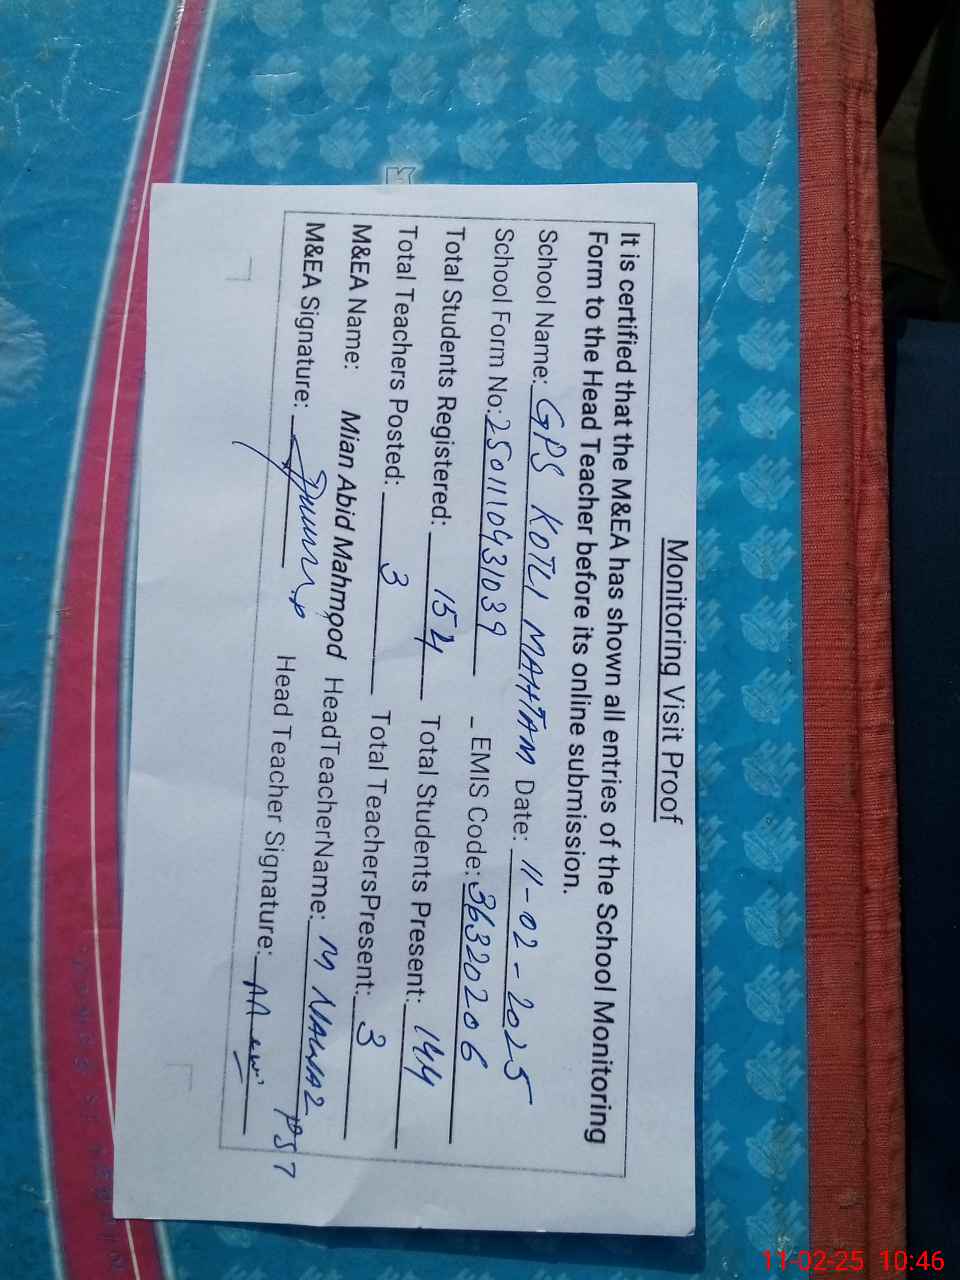 Monitoring Visit Proof
It is certified that the M&EA has shown all entries of the School Monitoring
Form to the Head Teacher before its online submission.
School Name: GPS KOTLI MAHTAM Date: 11-02-2025
School Form No: 250110431039 _ EMIS Code: 36320206
Total Students Registered: 154 Total Students Present: 144
Total Teachers Posted: 3 Total TeachersPresent: 3
M&EA Name: Mian Abid Mahmood HeadTeacherName: M NAWAZ PST
M&EA Signature: Head Teacher Signature:
11-02-25 10:46